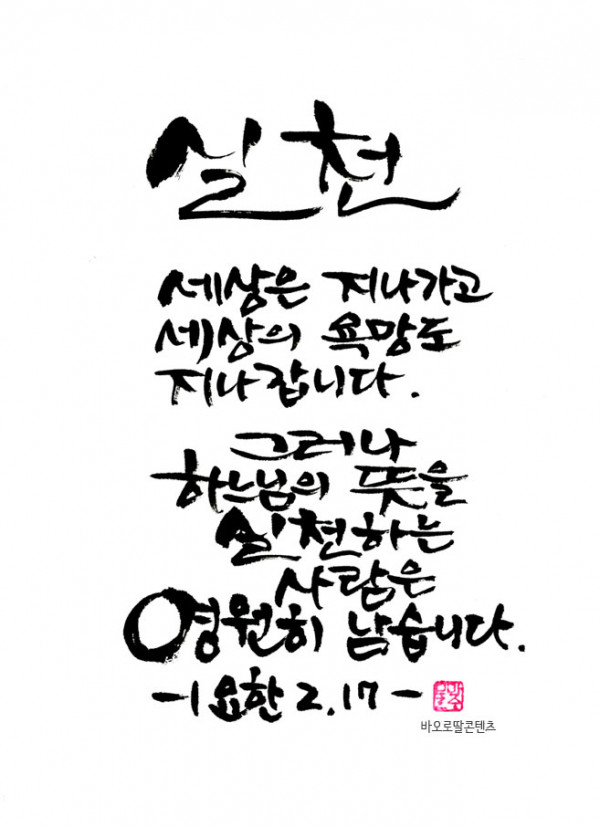 실천
세상은 지나가고
세상의 욕망도
지나갑니다.
그러나
하느님의 뜻을
실천하는
사람은
영원히 남습니다.
-1 요한 2.17-
바오로딸콘텐츠